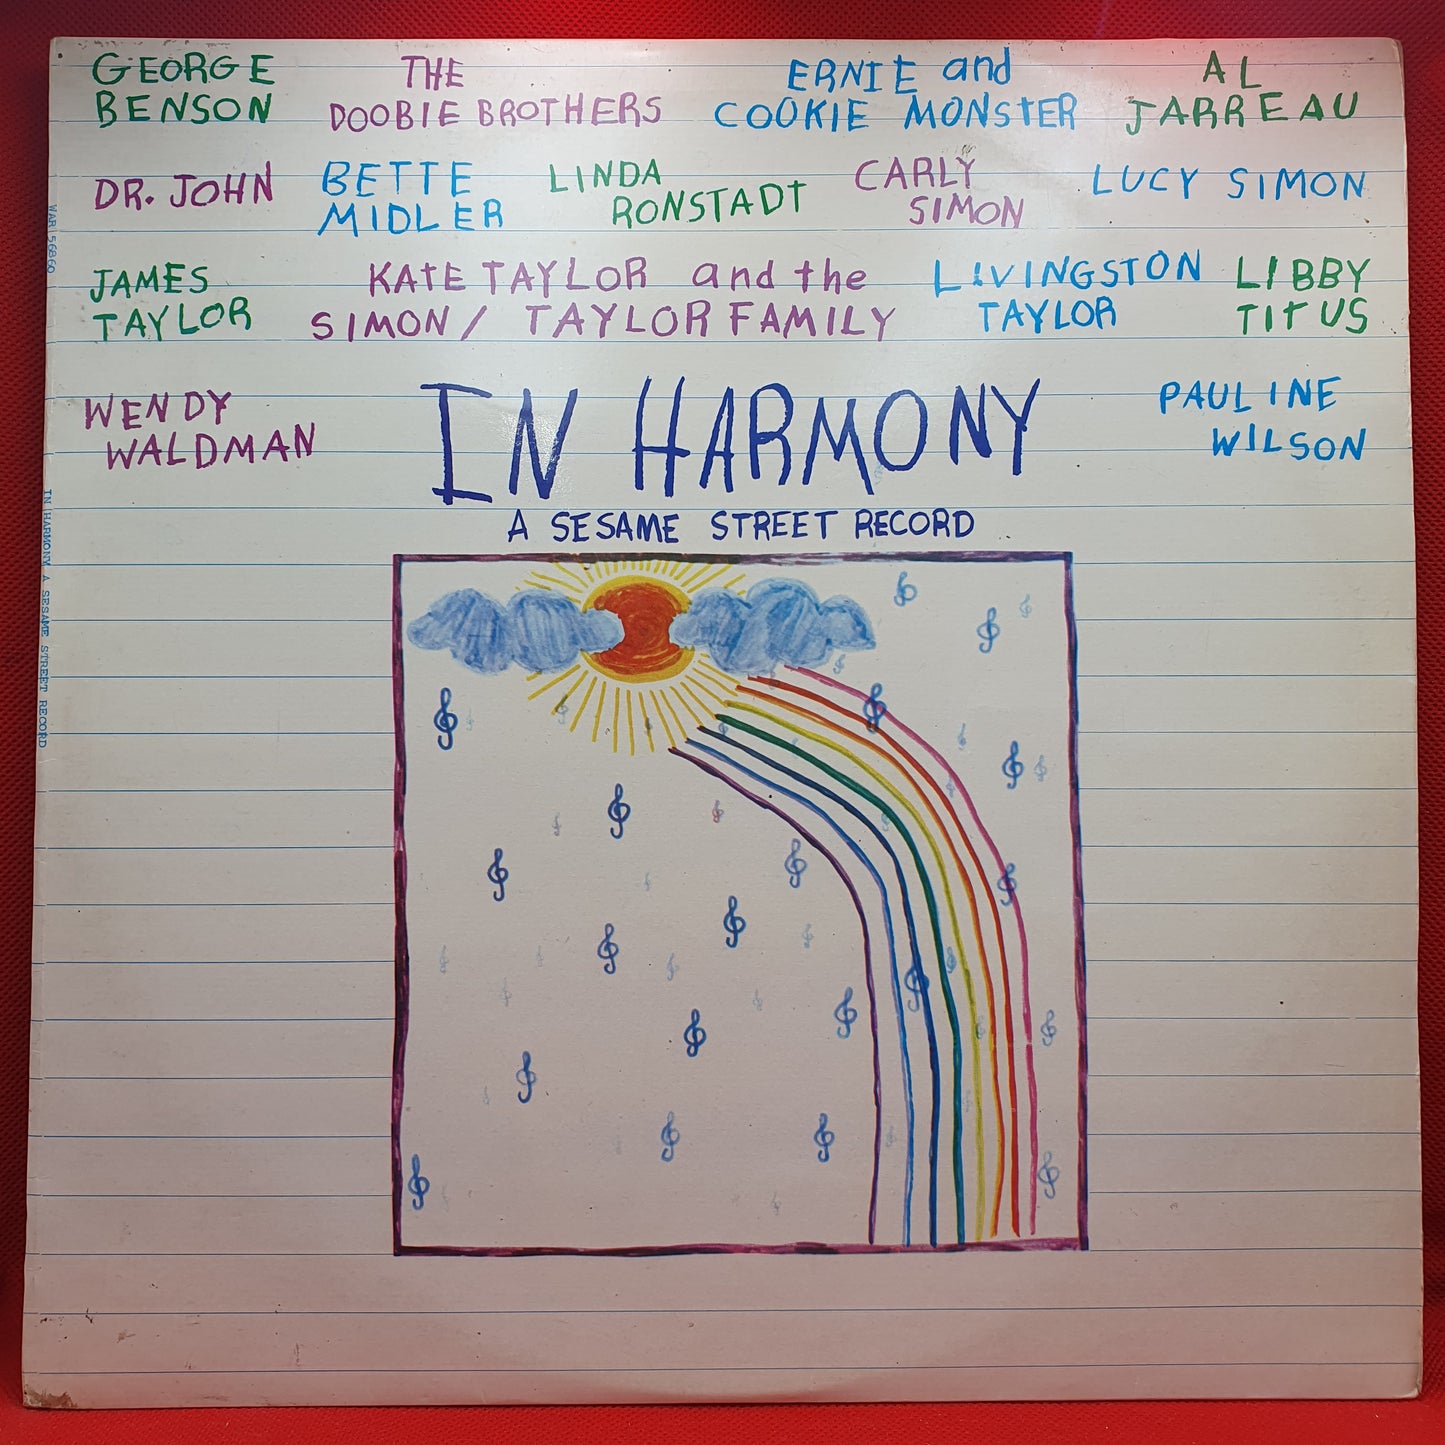 GEORGE
BENSON
THE
DOOBIE BROTHERS
ERNIE and
COOKIE MONSTER
AL
JARREAU
DR. JOHN
BETTE
MIDLER
LINDA
RONSTADT
CARLY
SIMON
LUCY SIMON
JAMES
TAYLOR
KATE TAYLOR and the
SIMON / TAYLOR FAMILY
LIVINGSTON
TAYLOR
LIBBY
TITUS
WENDY
WALDMAN
IN HARMONY
A SESAME STREET RECORD
PAULINE
WILSON
WAR 56860
IN HARMONY A SESAME STREET RECORD